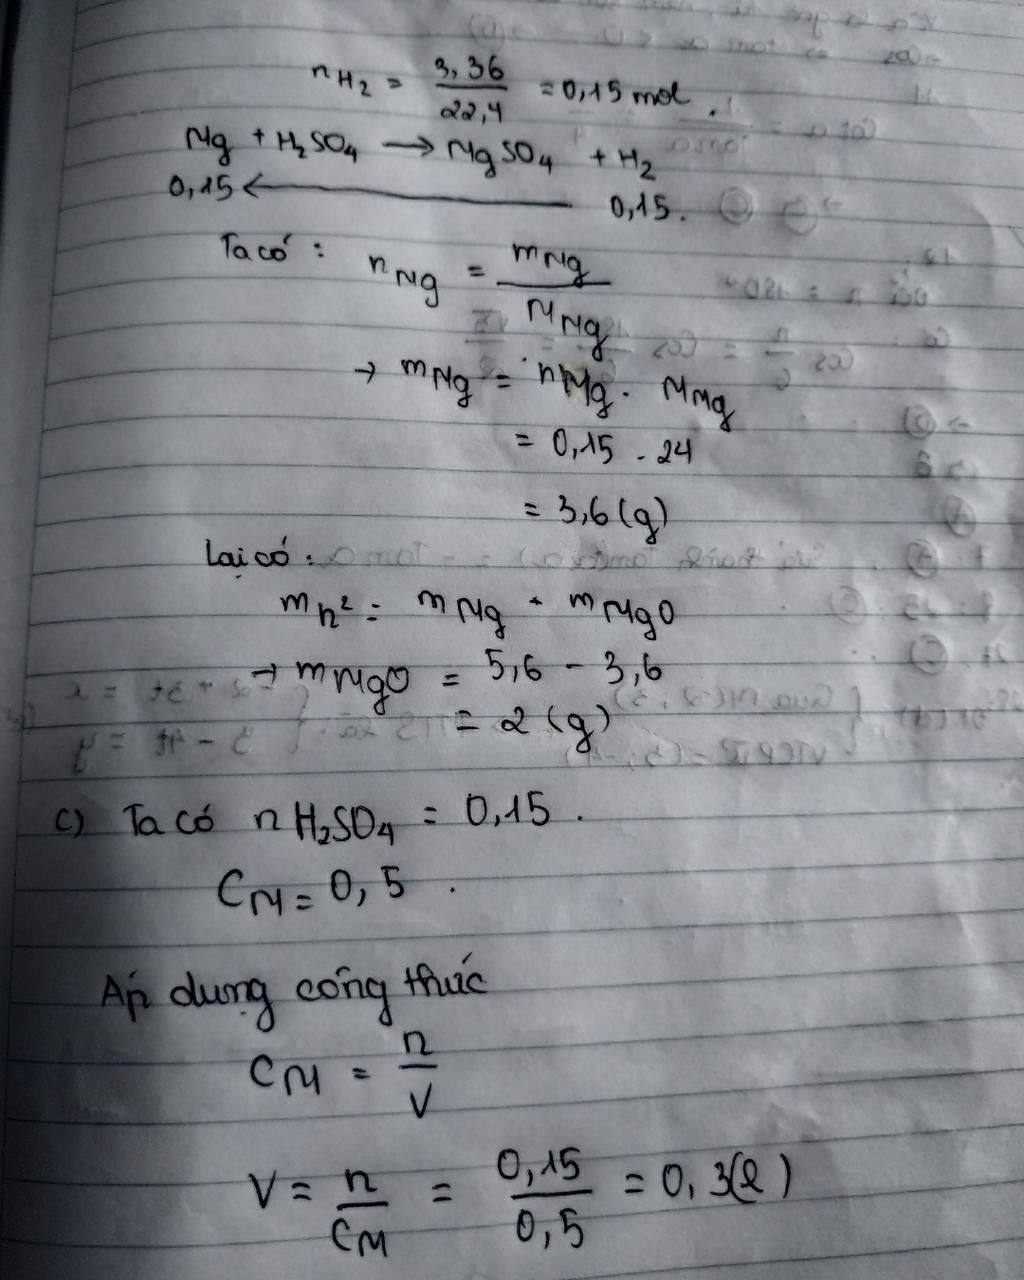 nH2 = 3,36/22,4 = 0,15 mol.
Mg + H2SO4 → MgSO4 + H2
0,15 ← 0,15.
Ta có : nMg = mMg/MMg
→ mMg = nMg . MMg
= 0,15 . 24
= 3,6 (g)
Lại có :
mh² = mMg + mMgO
→ mMgO = 5,6 - 3,6
= 2 (g)
c) Ta có nH2SO4 = 0,15 .
CM = 0,5 .
Áp dụng công thức
CM = n/V
V = n/CM = 0,15/0,5 = 0,3(l)